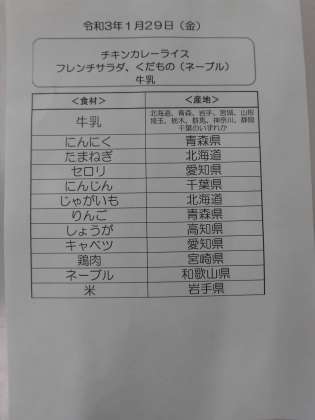 令和3年1月29日（金）
チキンカレーライス
フレンチサラダ、くだもの（ネーブル）
牛乳
＜食材＞ ＜産地＞
牛乳 北海道、青森、岩手、宮城、山形
埼玉、栃木、群馬、神奈川、静岡
千葉のいずれか
にんにく 青森県
たまねぎ 北海道
セロリ 愛知県
にんじん 千葉県
じゃがいも 北海道
りんご 青森県
しょうが 高知県
キャベツ 愛知県
鶏肉 宮崎県
ネーブル 和歌山県
米 岩手県